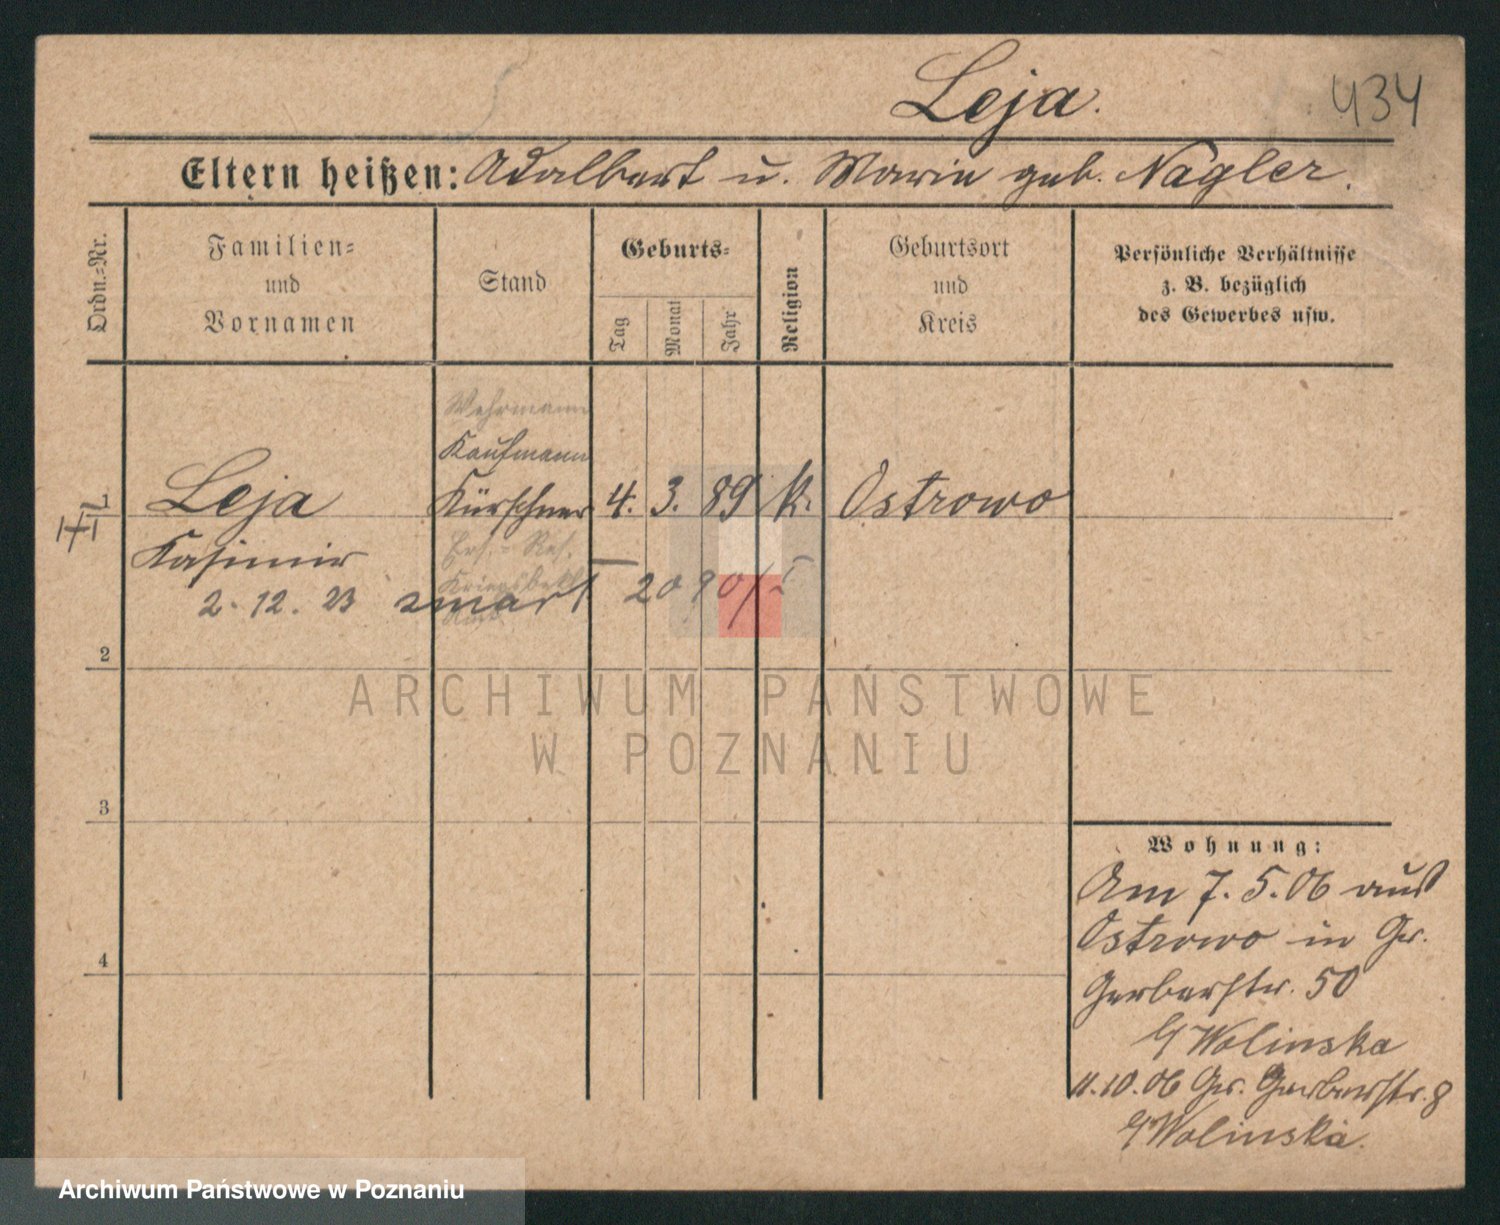 Leja.
434
Eltern heißen: Adalbert u. Marie geb. Nagler.
Ordn.-Nr.
Familien-
und
Vornamen
Stand
Geburts-
Tag
Monat
Jahr
Religion
Geburtsort
und
Kreis
Persönliche Verhältnisse
z. B. bezüglich
des Gewerbes usw.
Wehrmann
Kaufmann
1 Leja Kürschner 4. 3. 89 k. Ostrowo
Kasimir Ers.-Res.
2.12.23 zmarł 2090/I
2
3
4
Wohnung:
Am 7.5.06 aus
Ostrowo in Gr.
Gerberstr. 50
b/ Wolinska
11.10.06 Gr. Gerberstr. 8
b/ Wolinska.
ARCHIWUM PAŃSTWOWE
W POZNANIU
Archiwum Państwowe w Poznaniu